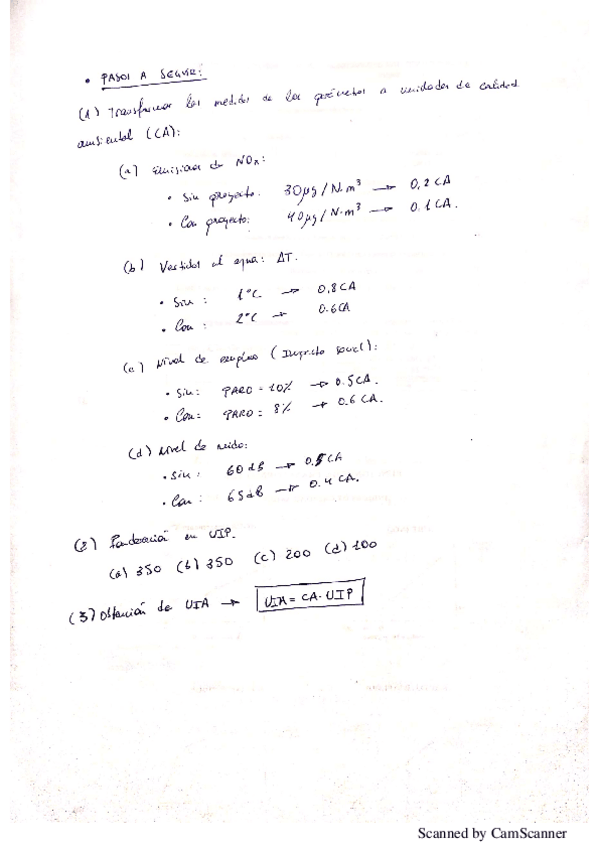 • PASOS A SEGUIR:
(1) Transformar las medidas de los parámetros a unidades de calidad
ambiental (CA):
(a) Emisiones de NOx:
• Sin proyecto: 30 µg/N·m³ → 0,2 CA
• Con proyecto: 40 µg/N·m³ → 0.1 CA.
(b) Vertidos al agua: ΔT.
• Sin: 1°C → 0,8 CA
• Con: 2°C → 0.6 CA
(c) Nivel de empleo (Impacto social):
• Sin: PARO = 10% → 0.5 CA.
• Con: PARO = 8% → 0.6 CA.
(d) Nivel de ruido:
• Sin: 60 dB → 0,5 CA
• Con: 65 dB → 0.4 CA.
(2) Ponderación en UIP.
(a) 350 (b) 350 (c) 200 (d) 100
(3) Obtención de UIA → UIA = CA · UIP
Scanned by CamScanner